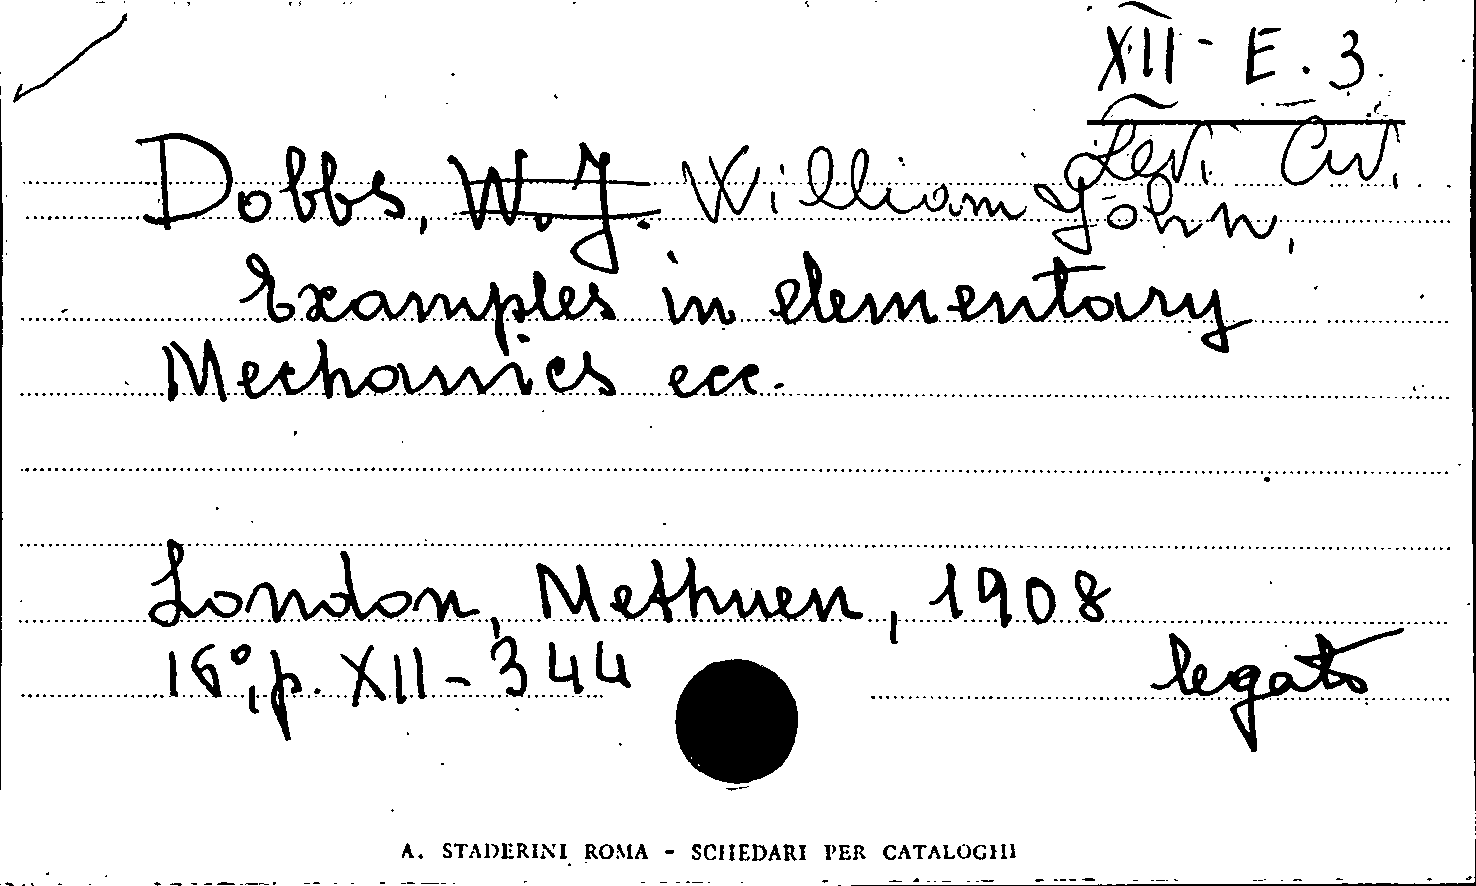 XII - E. 3
Levi Civ.
Dobbs, W. J. William John,
Examples in elementary
Mechanics ecc.
London, Methuen, 1908
16°, p. XII - 344
legato
A. STADERINI ROMA - SCHEDARI PER CATALOGHI